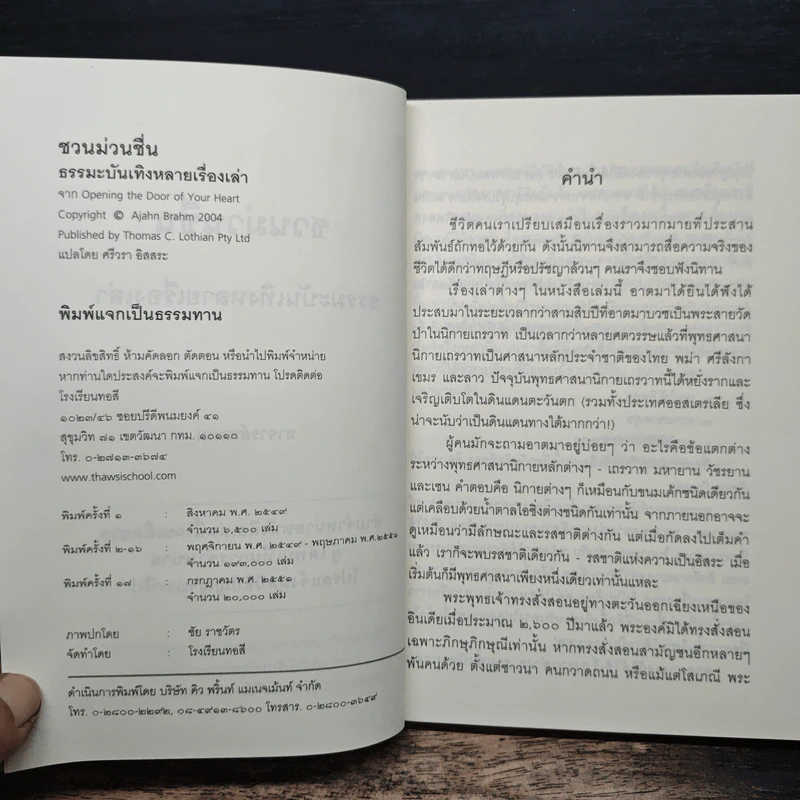 ชวนม่วนชื่น
ธรรมะบันเทิงหลายเรื่องเล่า
จาก Opening the Door of Your Heart
Copyright © Ajahn Brahm 2004
Published by Thomas C. Lothian Pty Ltd
แปลโดย ศรีวรา อิสสระ
พิมพ์แจกเป็นธรรมทาน
สงวนลิขสิทธิ์ ห้ามคัดลอก ตัดตอน หรือนำไปพิมพ์จำหน่าย
หากท่านใดประสงค์จะพิมพ์แจกเป็นธรรมทาน โปรดติดต่อ
โรงเรียนทอสี
๑๐๒๓/๔๖ ซอยปรีดีพนมยงค์ ๔๑
สุขุมวิท ๗๑ เขตวัฒนา กทม. ๑๐๑๑๐
โทร. ๐-๒๗๑๓-๓๖๗๔
www.thawsischool.com
พิมพ์ครั้งที่ ๑ : สิงหาคม พ.ศ. ๒๕๔๙
จำนวน ๖,๕๐๐ เล่ม
พิมพ์ครั้งที่ ๒-๑๖ : พฤศจิกายน พ.ศ. ๒๕๔๙ - พฤษภาคม พ.ศ.๒๕๕๑
จำนวน ๑๙๓,๐๐๐ เล่ม
พิมพ์ครั้งที่ ๑๗ : กรกฎาคม พ.ศ. ๒๕๕๑
จำนวน ๒๐,๐๐๐ เล่ม
ภาพปกโดย : ชัย ราชวัตร
จัดทำโดย : โรงเรียนทอสี
ดำเนินการพิมพ์โดย บริษัท คิว พริ้นท์ แมเนจเม้นท์ จำกัด
โทร. ๐-๒๘๐๐-๒๒๙๒, ๐๘-๔๙๑๓-๘๖๐๐ โทรสาร. ๐-๒๘๐๐-๓๖๔๙
คำนำ
ชีวิตคนเราเปรียบเสมือนเรื่องราวมากมายที่ประสาน
สัมพันธ์ถักทอไว้ด้วยกัน ดังนั้นนิทานจึงสามารถสื่อความจริงของ
ชีวิตได้ดีกว่าทฤษฎีหรือปรัชญาล้วนๆ คนเราจึงชอบฟังนิทาน
เรื่องเล่าต่างๆ ในหนังสือเล่มนี้ อาตมาได้ยินได้ฟังได้
ประสบมาในระยะเวลากว่าสามสิบปีที่อาตมาบวชเป็นพระสายวัด
ป่าในนิกายเถรวาท เป็นเวลากว่าหลายศตวรรษแล้วที่พุทธศาสนา
นิกายเถรวาทเป็นศาสนาหลักประจำชาติของไทย พม่า ศรีลังกา
เขมร และลาว ปัจจุบันพุทธศาสนานิกายเถรวาทนี้ได้หยั่งรากและ
เจริญเติบโตในดินแดนตะวันตก (รวมทั้งประเทศออสเตรเลีย ซึ่ง
น่าจะนับว่าเป็นดินแดนทางใต้มากกว่า!)
ผู้คนมักจะถามอาตมาอยู่บ่อยๆ ว่า อะไรคือข้อแตกต่าง
ระหว่างพุทธศาสนานิกายหลักต่างๆ - เถรวาท มหายาน วัชรยาน
และเซน คำตอบคือ นิกายต่างๆ ก็เหมือนกับขนมเค้กชนิดเดียวกัน
แต่เคลือบด้วยน้ำตาลไอซิ่งต่างชนิดกันเท่านั้น จากภายนอกอาจจะ
ดูเหมือนว่ามีลักษณะและรสชาติต่างกัน แต่เมื่อกัดลงไปเต็มคำ
แล้ว เราก็จะพบรสชาติเดียวกัน - รสชาติแห่งความเป็นอิสระ เมื่อ
เริ่มต้นก็มีพุทธศาสนาเพียงหนึ่งเดียวเท่านั้นแหละ
พระพุทธเจ้าทรงสั่งสอนอยู่ทางตะวันออกเฉียงเหนือของ
อินเดียเมื่อประมาณ ๒,๖๐๐ ปีมาแล้ว พระองค์มิได้ทรงสั่งสอน
เฉพาะภิกษุภิกษุณีเท่านั้น หากทรงสั่งสอนสามัญชนอีกหลายๆ
พันคนด้วย ตั้งแต่ชาวนา คนกวาดถนน หรือแม้แต่โสเภณี พระ